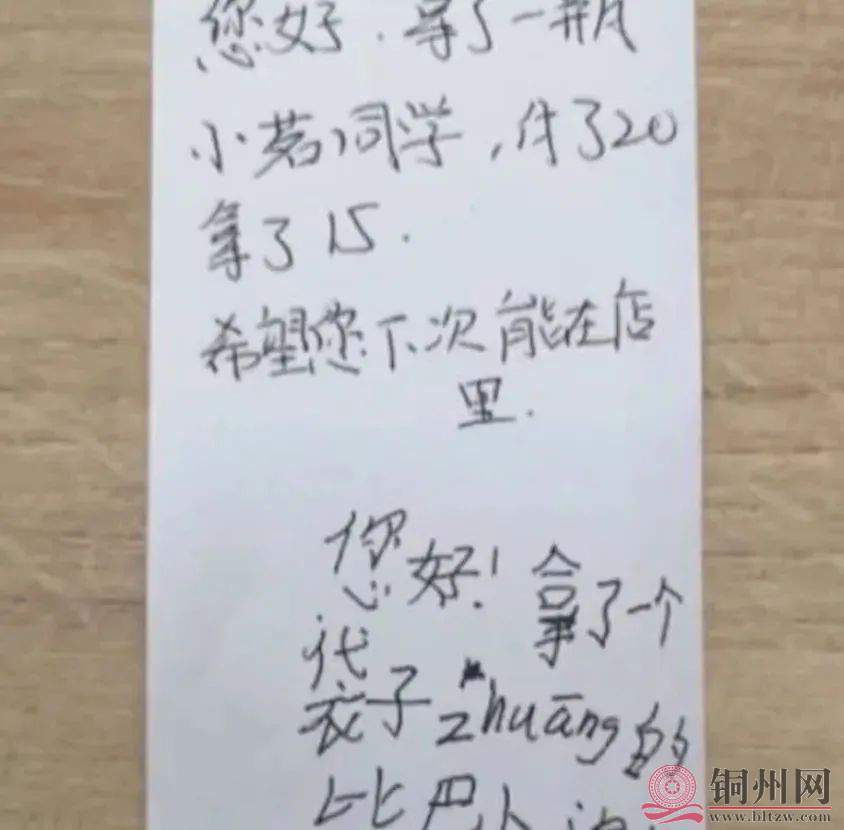 您好.拿了一瓶
小茗同学,付了20
拿了15.
希望您下次能在店
里.
您好!拿了一个
袋子zhuāng的
比巴卜泡
铜州网
www.bltzw.com